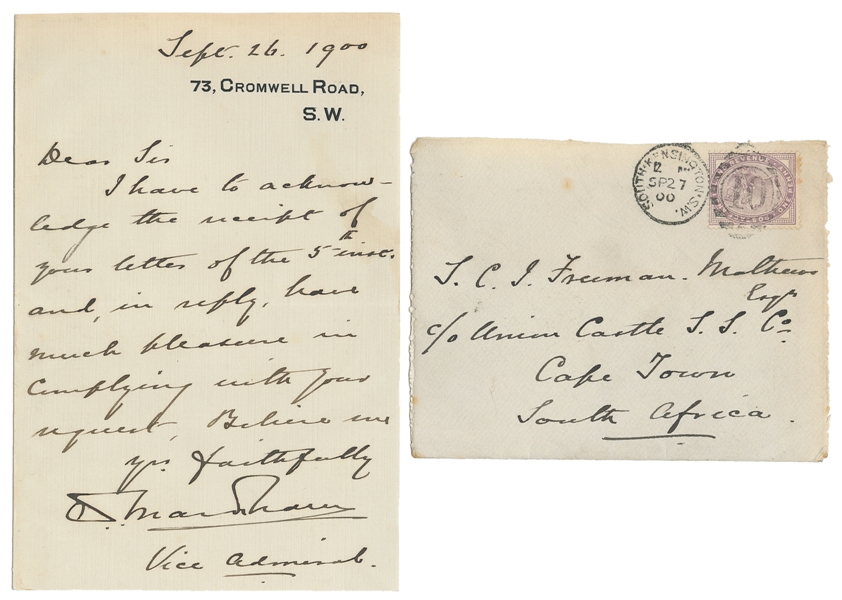 Sept. 26. 1900
73, CROMWELL ROAD,
S.W.
Dear Sir
I have to acknow-
ledge the receipt of
your letter of the 5th inst.
and, in reply, have
much pleasure in
complying with your
request. Believe me
yrs faithfully
Vice Admiral.
SOUTH KENSINGTON.S.W.
SP27
00
10
S. C. J. Freeman. Mathews
Esqr
c/o Union Castle S. S. Co.
Cape Town
South Africa.